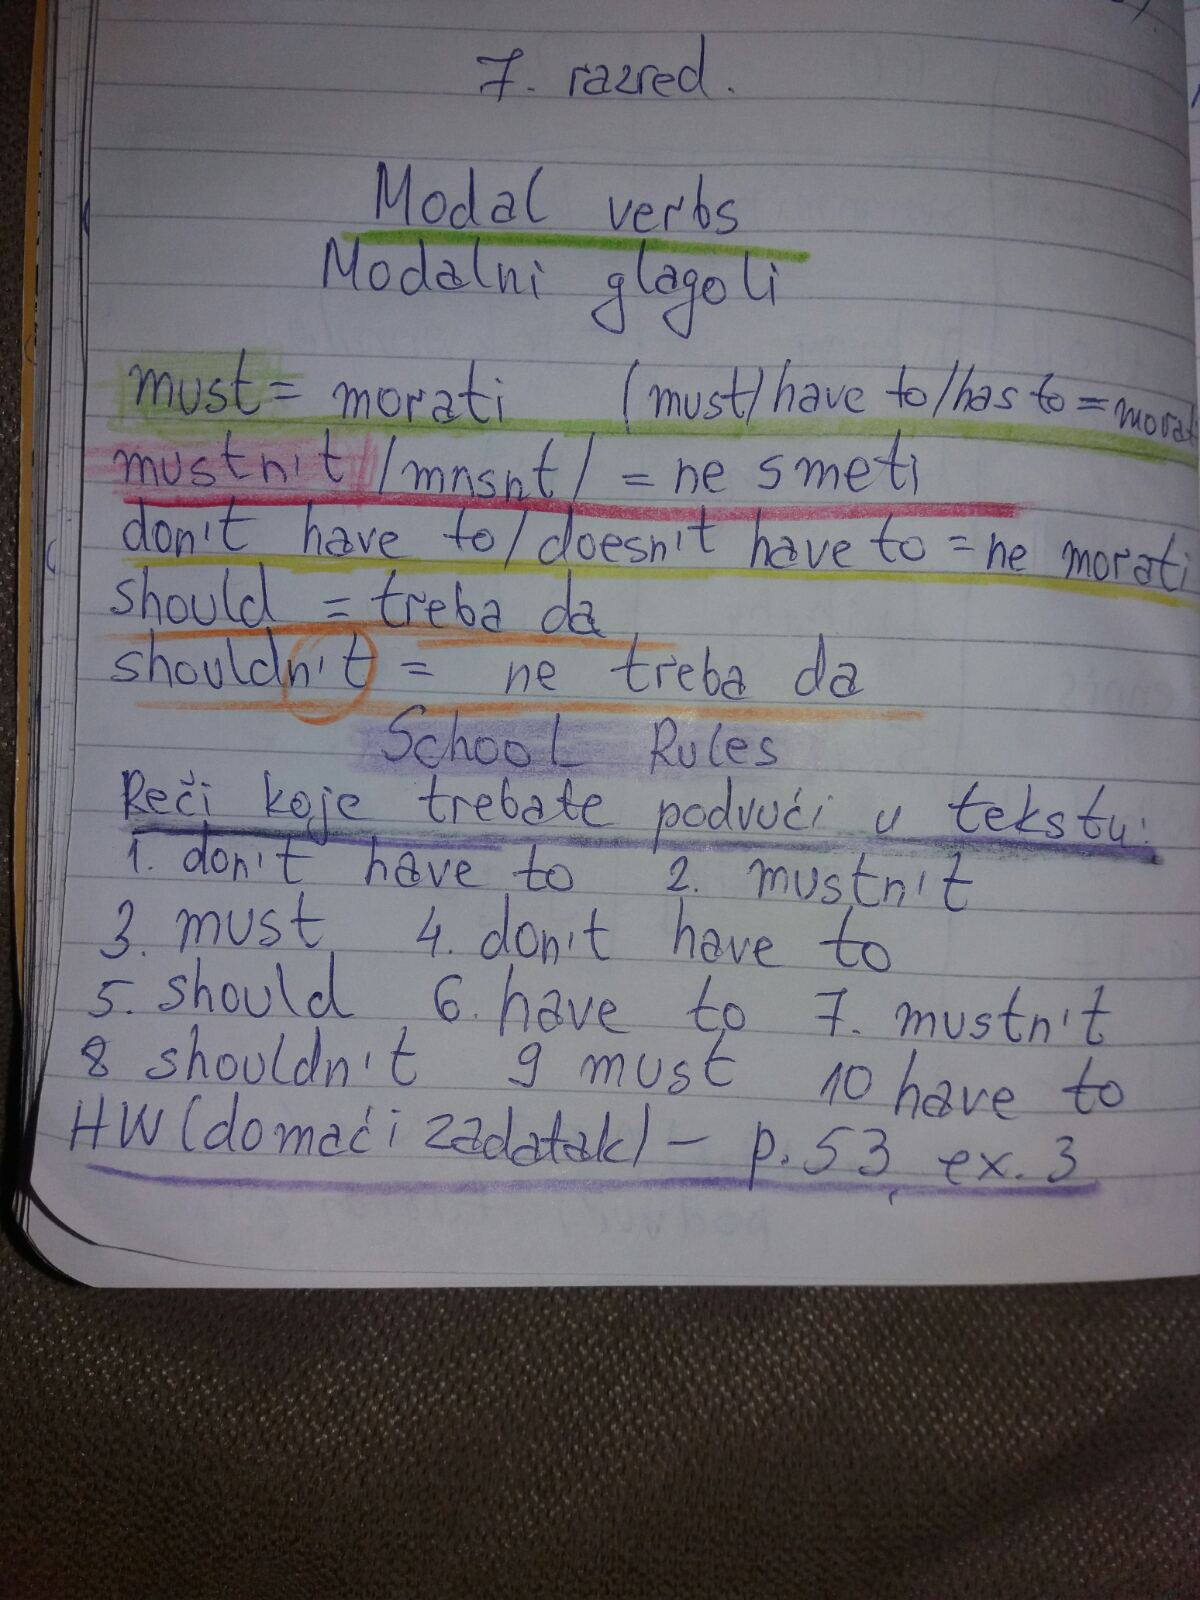 7. razred.
Modal verbs
Modalni glagoli
must = morati (must/have to/has to = morati
mustn't /mʌsnt/ = ne smeti
don't have to/doesn't have to = ne morati
should = treba da
shouldn't = ne treba da
School Rules
Reči koje trebate podvući u tekstu:
1. don't have to 2. mustn't
3. must 4. don't have to
5. should 6. have to 7. mustn't
8 shouldn't 9 must 10 have to
HW (domaći zadatak) - p. 53, ex. 3